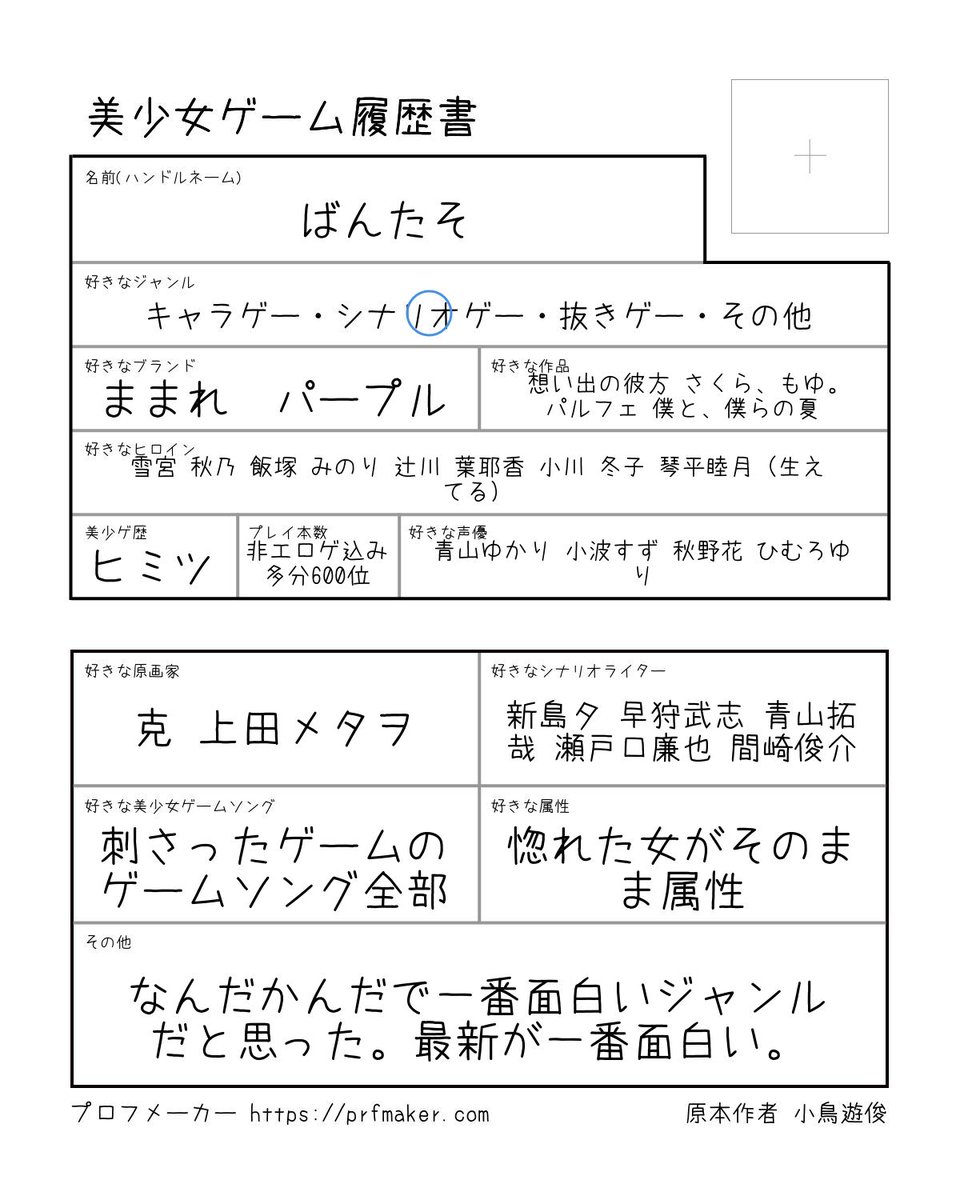 美少女ゲーム履歴書
名前(ハンドルネーム)
ばんたそ
好きなジャンル
キャラゲー・シナリオゲー・抜きゲー・その他
好きなブランド
ままれ　パープル
好きな作品
想い出の彼方 さくら、もゆ。
パルフェ 僕と、僕らの夏
好きなヒロイン
雪宮 秋乃 飯塚 みのり 辻川 葉耶香 小川 冬子 琴平睦月（生え
てる）
美少ゲ歴
ヒミツ
プレイ本数
非エロゲ込み
多分600位
好きな声優
青山ゆかり 小波すず 秋野花 ひむろゆ
り
好きな原画家
克 上田メタヲ
好きなシナリオライター
新島夕 早狩武志 青山拓
哉 瀬戸口廉也 間崎俊介
好きな美少女ゲームソング
刺さったゲームの
ゲームソング全部
好きな属性
惚れた女がそのま
ま属性
その他
なんだかんだで一番面白いジャンル
だと思った。最新が一番面白い。
プロフメーカー https://prfmaker.com
原本作者 小鳥遊俊